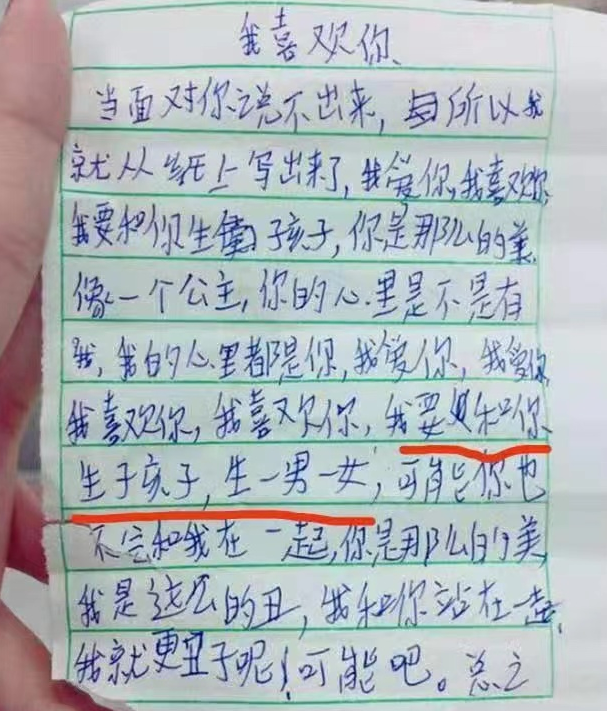 我喜欢你、
当面对你说不出来，所以我
就从纸上写出来了，我爱你，我喜欢你
我要和你生孩子，你是那么的美，
像一个公主，你的心里是不是有
我，我的心里都是你，我爱你，我爱你
我喜欢你，我喜欢你，我要和你
生子孩子，生一男一女，可能你也
不和我在一起，你是那么的美，
我是这么的丑，我和你站在一起，
我就更丑了呢！可能吧。总之